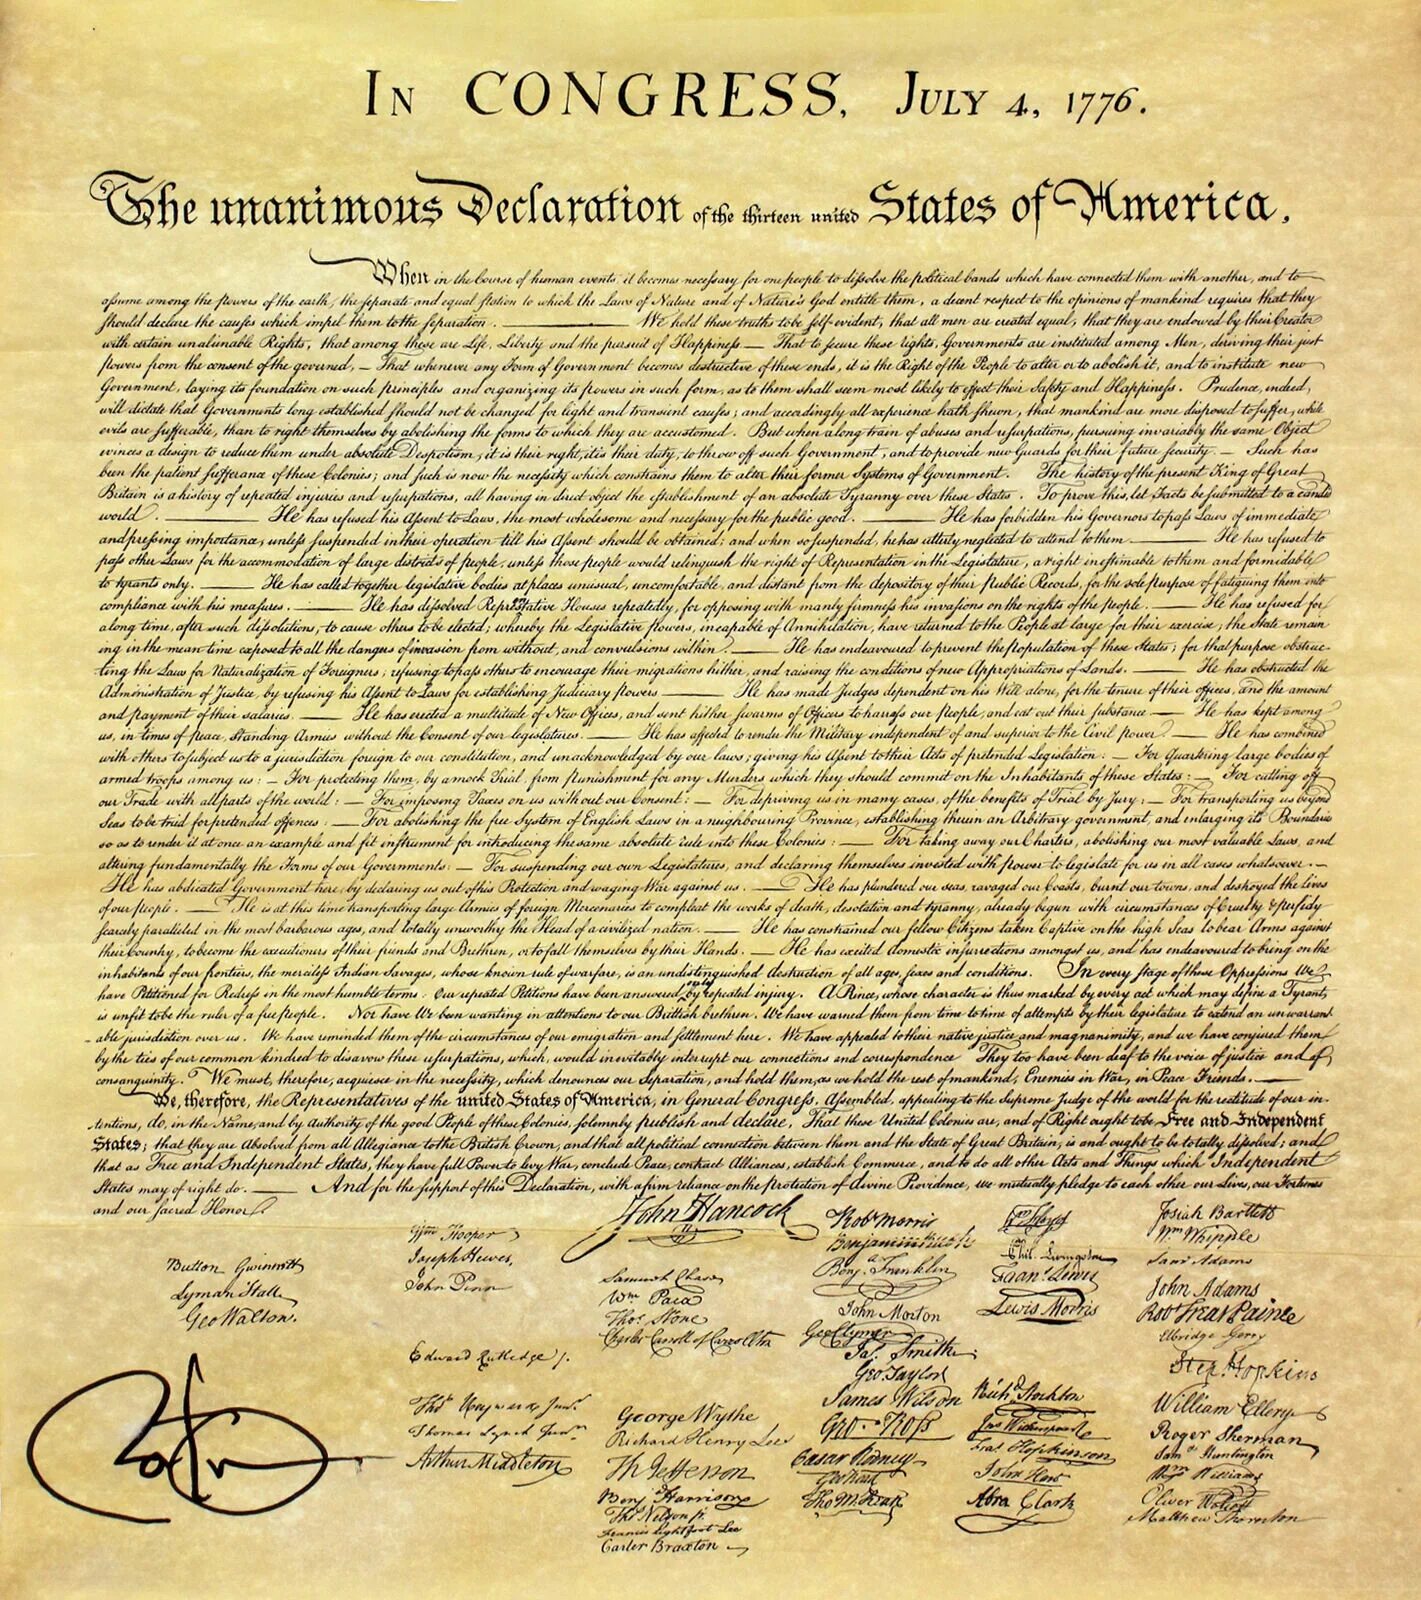 In CONGRESS, July 4, 1776.
The unanimous Declaration of the thirteen united States of America.
When in the Course of human events it becomes necessary for one people to dissolve the political bands which have connected them with another, and to
assume among the powers of the earth, the separate and equal station to which the Laws of Nature and of Nature's God entitle them, a decent respect to the opinions of mankind requires that they
should declare the causes which impel them to the separation. — We hold these truths to be self-evident, that all men are created equal, that they are endowed by their Creator
with certain unalienable Rights, that among these are Life, Liberty and the pursuit of Happiness — That to secure these rights, Governments are instituted among Men, deriving their just
powers from the consent of the governed, — That whenever any Form of Government becomes destructive of these ends, it is the Right of the People to alter or to abolish it, and to institute new
Government, laying its foundation on such principles and organizing its powers in such form, as to them shall seem most likely to effect their Safety and Happiness. Prudence, indeed,
will dictate that Governments long established should not be changed for light and transient causes; and accordingly all experience hath shewn, that mankind are more disposed to suffer, while
evils are sufferable, than to right themselves by abolishing the forms to which they are accustomed. But when a long train of abuses and usurpations, pursuing invariably the same Object
evinces a design to reduce them under absolute Despotism, it is their right, it is their duty, to throw off such Government, and to provide new Guards for their future security. — Such has
been the patient sufferance of these Colonies; and such is now the necessity which constrains them to alter their former Systems of Government. The history of the present King of Great
Britain is a history of repeated injuries and usurpations, all having in direct object the establishment of an absolute Tyranny over these States. To prove this, let Facts be submitted to a candid
world. — He has refused his Assent to Laws, the most wholesome and necessary for the public good. — He has forbidden his Governors to pass Laws of immediate
and pressing importance, unless suspended in their operation till his Assent should be obtained; and when so suspended, he has utterly neglected to attend to them. — He has refused to
pass other Laws for the accommodation of large districts of people, unless those people would relinquish the right of Representation in the Legislature, a right inestimable to them and formidable
to tyrants only. — He has called together legislative bodies at places unusual, uncomfortable, and distant from the depository of their Public Records, for the sole purpose of fatiguing them into
compliance with his measures. — He has dissolved Representative Houses repeatedly, for opposing with manly firmness his invasions on the rights of the people. — He has refused for
a long time, after such dissolutions, to cause others to be elected; whereby the Legislative powers, incapable of Annihilation, have returned to the People at large for their exercise; the State remain
ing in the mean time exposed to all the dangers of invasion from without, and convulsions within. — He has endeavoured to prevent the population of these States; for that purpose obstruc-
ting the Laws for Naturalization of Foreigners; refusing to pass others to encourage their migrations hither, and raising the conditions of new Appropriations of Lands. — He has obstructed the
Administration of Justice, by refusing his Assent to Laws for establishing Judiciary powers — He has made Judges dependent on his Will alone, for the tenure of their offices, and the amount
and payment of their salaries. — He has erected a multitude of New Offices, and sent hither swarms of Officers to harass our people, and eat out their substance — He has kept among
us, in times of peace, Standing Armies without the Consent of our legislatures. — He has affected to render the Military independent of and superior to the Civil power. — He has combined
with others to subject us to a jurisdiction foreign to our constitution, and unacknowledged by our laws; giving his Assent to their Acts of pretended Legislation: — For Quartering large bodies of
armed troops among us: — For protecting them, by a mock Trial, from punishment for any Murders which they should commit on the Inhabitants of these States: — For cutting off
our Trade with all parts of the world: — For imposing Taxes on us without our Consent: — For depriving us in many cases, of the benefits of Trial by Jury: — For transporting us beyond
Seas to be tried for pretended offences: — For abolishing the free System of English Laws in a neighbouring Province, establishing therein an Arbitrary government, and enlarging its Boundaries
so as to render it at once an example and fit instrument for introducing the same absolute rule into these Colonies: — For taking away our Charters, abolishing our most valuable Laws, and
altering fundamentally the Forms of our Governments: — For suspending our own Legislatures, and declaring themselves invested with power to legislate for us in all cases whatsoever. —
He has abdicated Government here, by declaring us out of his Protection and waging War against us. — He has plundered our seas, ravaged our Coasts, burnt our towns, and destroyed the lives
of our people. — He is at this time transporting large Armies of foreign Mercenaries to compleat the works of death, desolation and tyranny, already begun with circumstances of Cruelty & perfidy
scarcely paralleled in the most barbarous ages, and totally unworthy the Head of a civilized nation. — He has constrained our fellow Citizens taken Captive on the high Seas to bear Arms against
their Country, to become the executioners of their friends and Brethren, or to fall themselves by their Hands. — He has excited domestic insurrections amongst us, and has endeavoured to bring on the
inhabitants of our frontiers, the merciless Indian Savages, whose known rule of warfare, is an undistinguished destruction of all ages, sexes and conditions. In every stage of these Oppressions We
have Petitioned for Redress in the most humble terms: Our repeated Petitions have been answered only by repeated injury. A Prince, whose character is thus marked by every act which may define a Tyrant,
is unfit to be the ruler of a free people. Nor have We been wanting in attentions to our Brittish brethren. We have warned them from time to time of attempts by their legislature to extend an unwarrant
able jurisdiction over us. We have reminded them of the circumstances of our emigration and settlement here. We have appealed to their native justice and magnanimity, and we have conjured them
by the ties of our common kindred to disavow these usurpations, which, would inevitably interrupt our connections and correspondence They too have been deaf to the voice of justice and of
consanguinity. We must, therefore, acquiesce in the necessity, which denounces our Separation, and hold them, as we hold the rest of mankind, Enemies in War, in Peace Friends. —
We, therefore, the Representatives of the united States of America, in General Congress, Assembled, appealing to the Supreme Judge of the world for the rectitude of our in-
tentions, do, in the Name, and by Authority of the good People of these Colonies, solemnly publish and declare, That these United Colonies are, and of Right ought to be Free and Independent
States; that they are Absolved from all Allegiance to the British Crown, and that all political connection between them and the State of Great Britain, is and ought to be totally dissolved; and
that as Free and Independent States, they have full Power to levy War, conclude Peace, contract Alliances, establish Commerce, and to do all other Acts and Things which Independent
States may of right do. — And for the support of this Declaration, with a firm reliance on the protection of divine Providence, we mutually pledge to each other our Lives, our Fortunes
and our sacred Honor.
Button Gwinnett
Lyman Hall
Geo Walton.
Wm Hooper
Joseph Hewes,
John Penn
Edward Rutledge
Thos Heyward Junr
Thomas Lynch Junr
Arthur Middleton
John Hancock
Samuel Chase
Wm Paca
Thos Stone
Charles Carroll of Carrollton
George Wythe
Richard Henry Lee
Th Jefferson
Benj Harrison
Thos Nelson jr.
Francis Lightfoot Lee
Carter Braxton
Robt Morris
Benjamin Rush
Benj. Franklin
John Morton
Geo Clymer
Jas. Smith
Geo Taylor
James Wilson
Geo. Ross
Caesar Rodney
Geo Read
Tho M:Kean
Wm Floyd
Phil. Livingston
Frans. Lewis
Lewis Morris
Richd Stockton
Jno Witherspoon
Fras. Hopkinson
John Hart
Abra Clark
Josiah Bartlett
Wm Whipple
Saml Adams
John Adams
Robt Treat Paine
Elbridge Gerry
Step. Hopkins
William Ellery
Roger Sherman
Saml Huntington
Wm Williams
Oliver Wolcott
Matthew Thornton